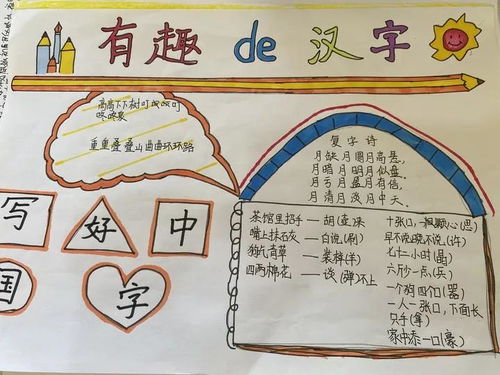 有趣 de 汉字
高高下下树叮叮咚咚泉
重重叠叠山曲曲环环路
写 好 中
国 字
复字诗
月缺月圆月高悬，
月暗月明月似盘
月亏月盈月有信，
月清月淡月中天。
茶馆里招手——胡(壶)来
嘴上抹石灰——白说(刷)
狗吃青草——装样(羊)
四两棉花——谈(弹)不上
十张口，一颗心(思)
早不说晚不说(许)
七十一小时(晶)
六斤少一点(兵)
一个狗四个口(器)
一人一张口，下面长
只手(拿)
家中添一口(豪)